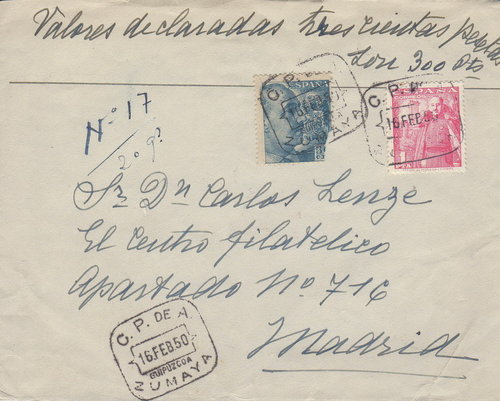 Valores declaradas trescientas pesetas
Son 300 Pts
Nº 17
20 g
ESPAÑA
C. P. DE A
16 FEB 50
ZUMAYA
ESPAÑA
C. P. DE A
16 FEB 50
Sr Dn Carlos Lenze
El Centro filatelico
Apartado Nº 716
Madrid
C. P. DE A
16.FEB 50
GUIPUZCOA
ZUMAYA